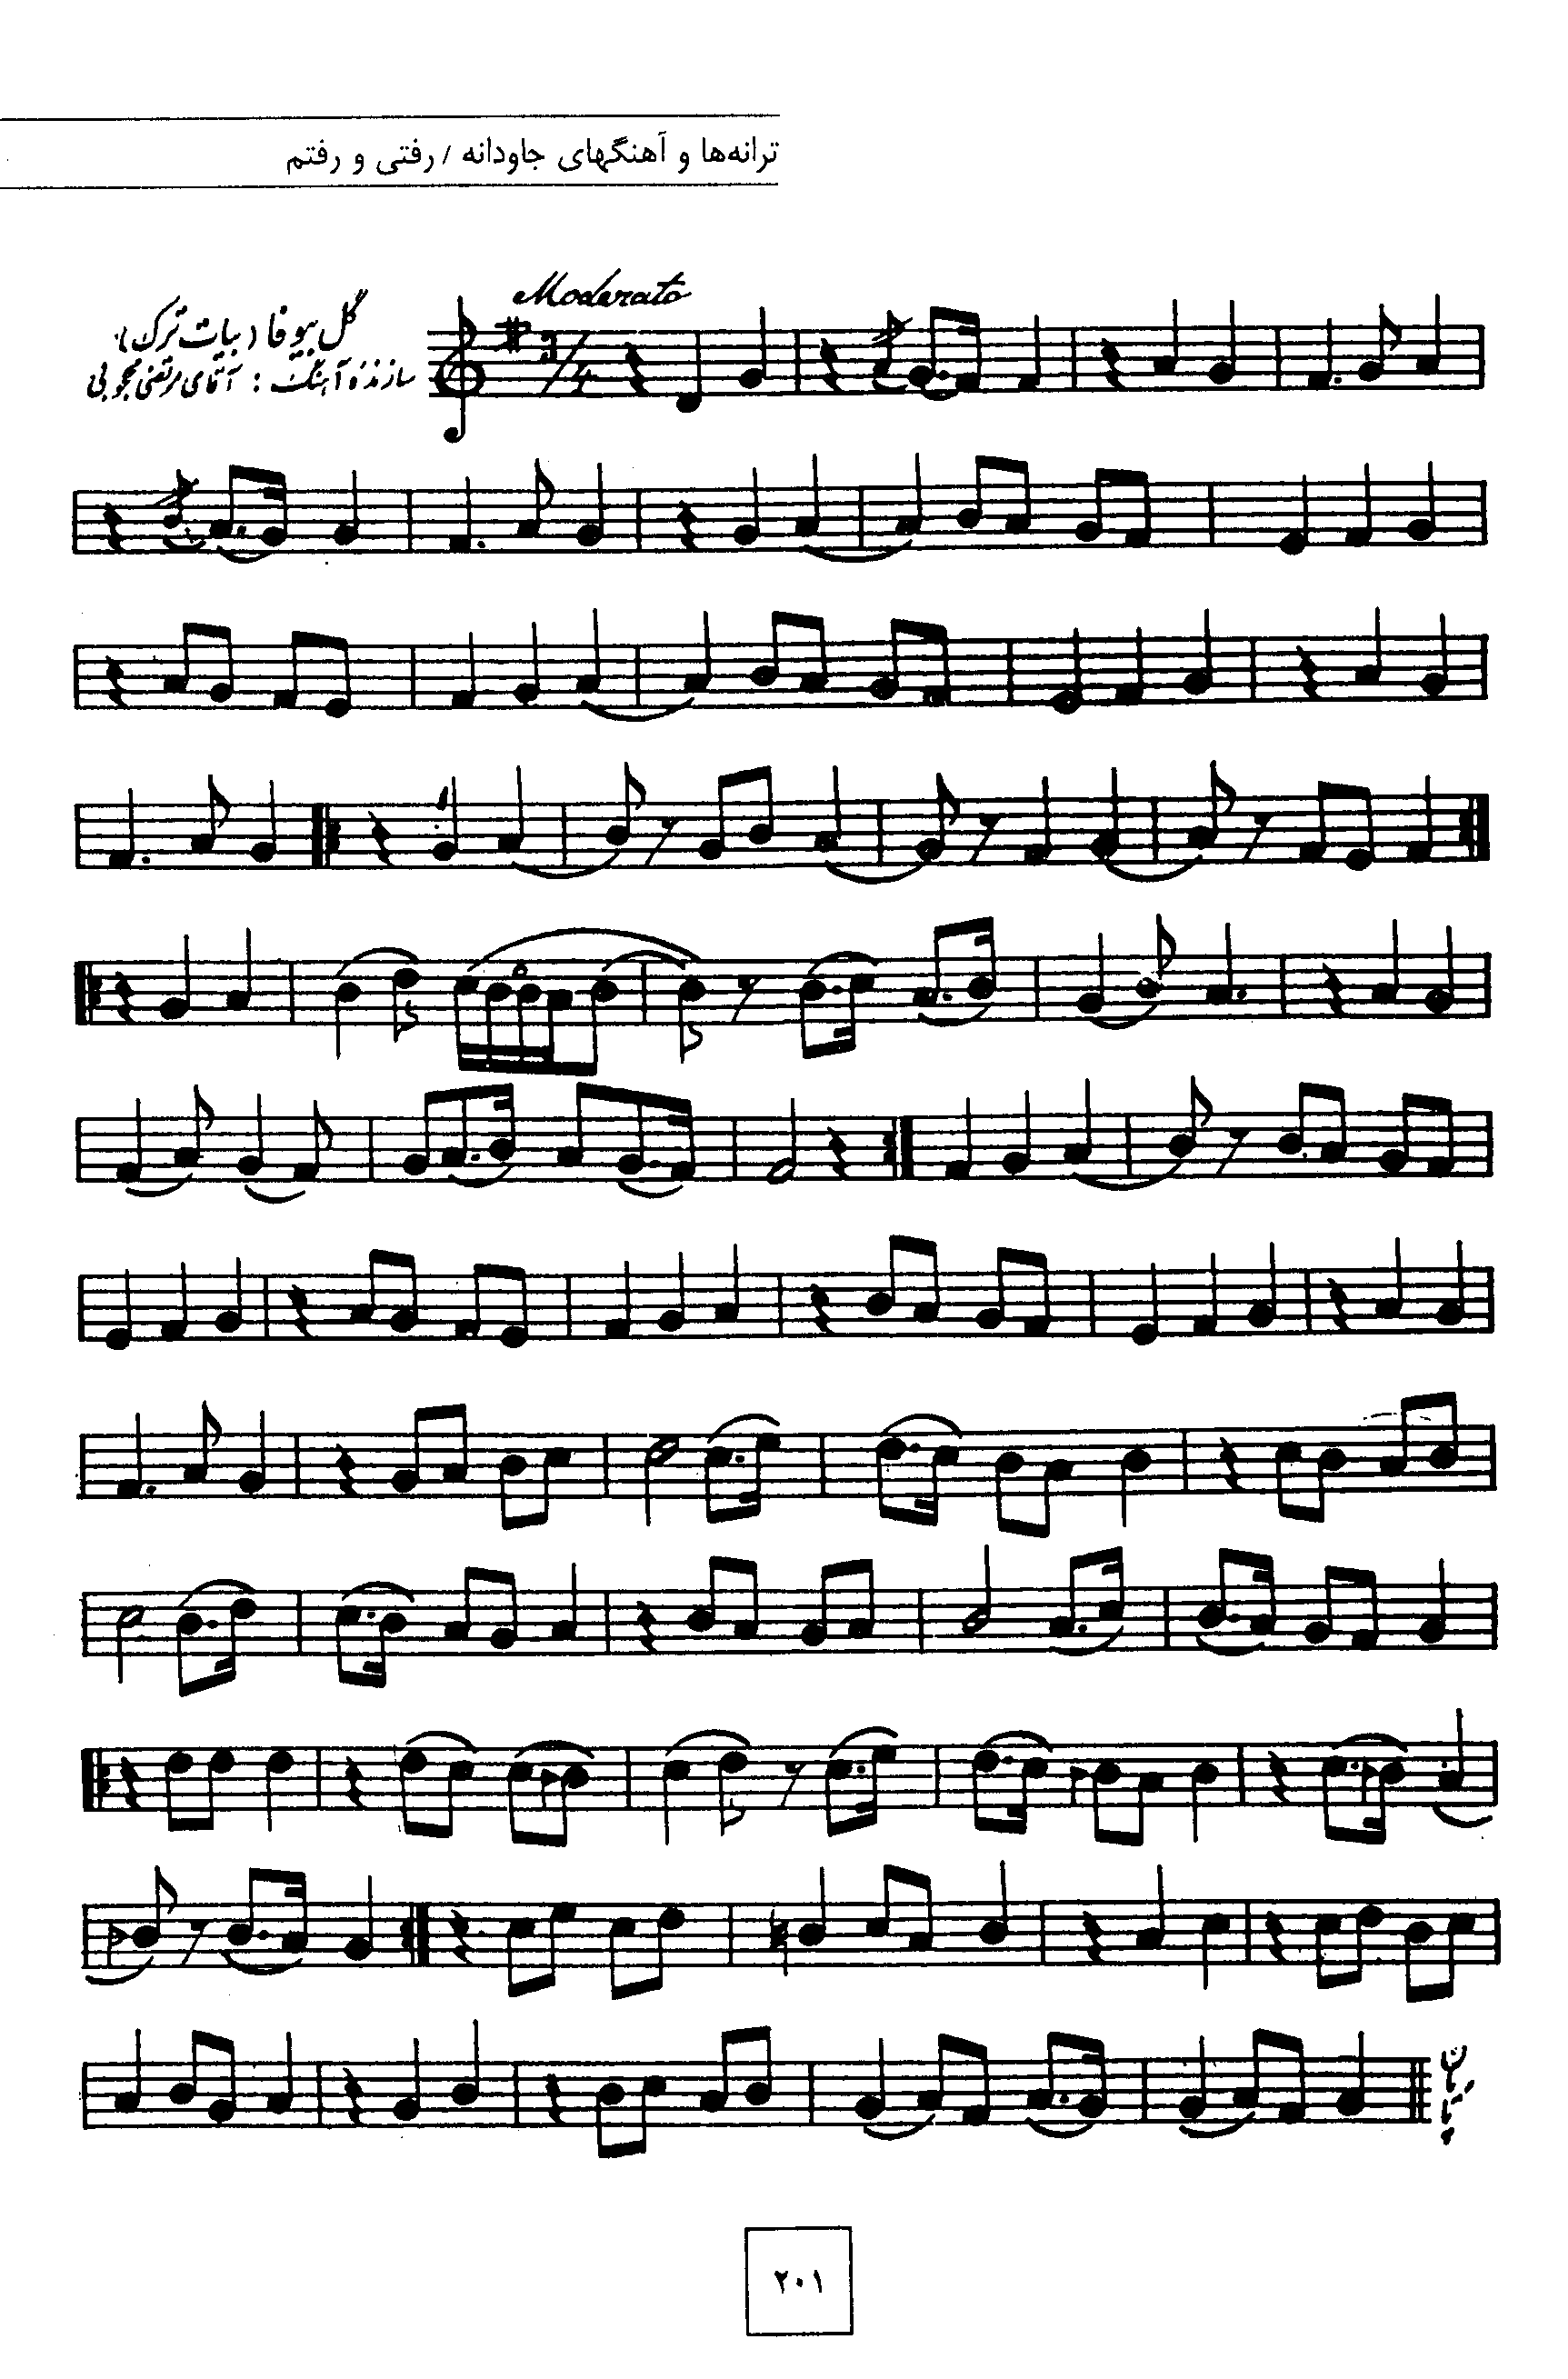 ترانه‌ها و آهنگهای جاودانه / رفتی و رفتم
Moderato
گل بیوفا (بیات ترک)
سازنده آهنگ : آقای مرتضی محجوبی
پایان
۲۰۱